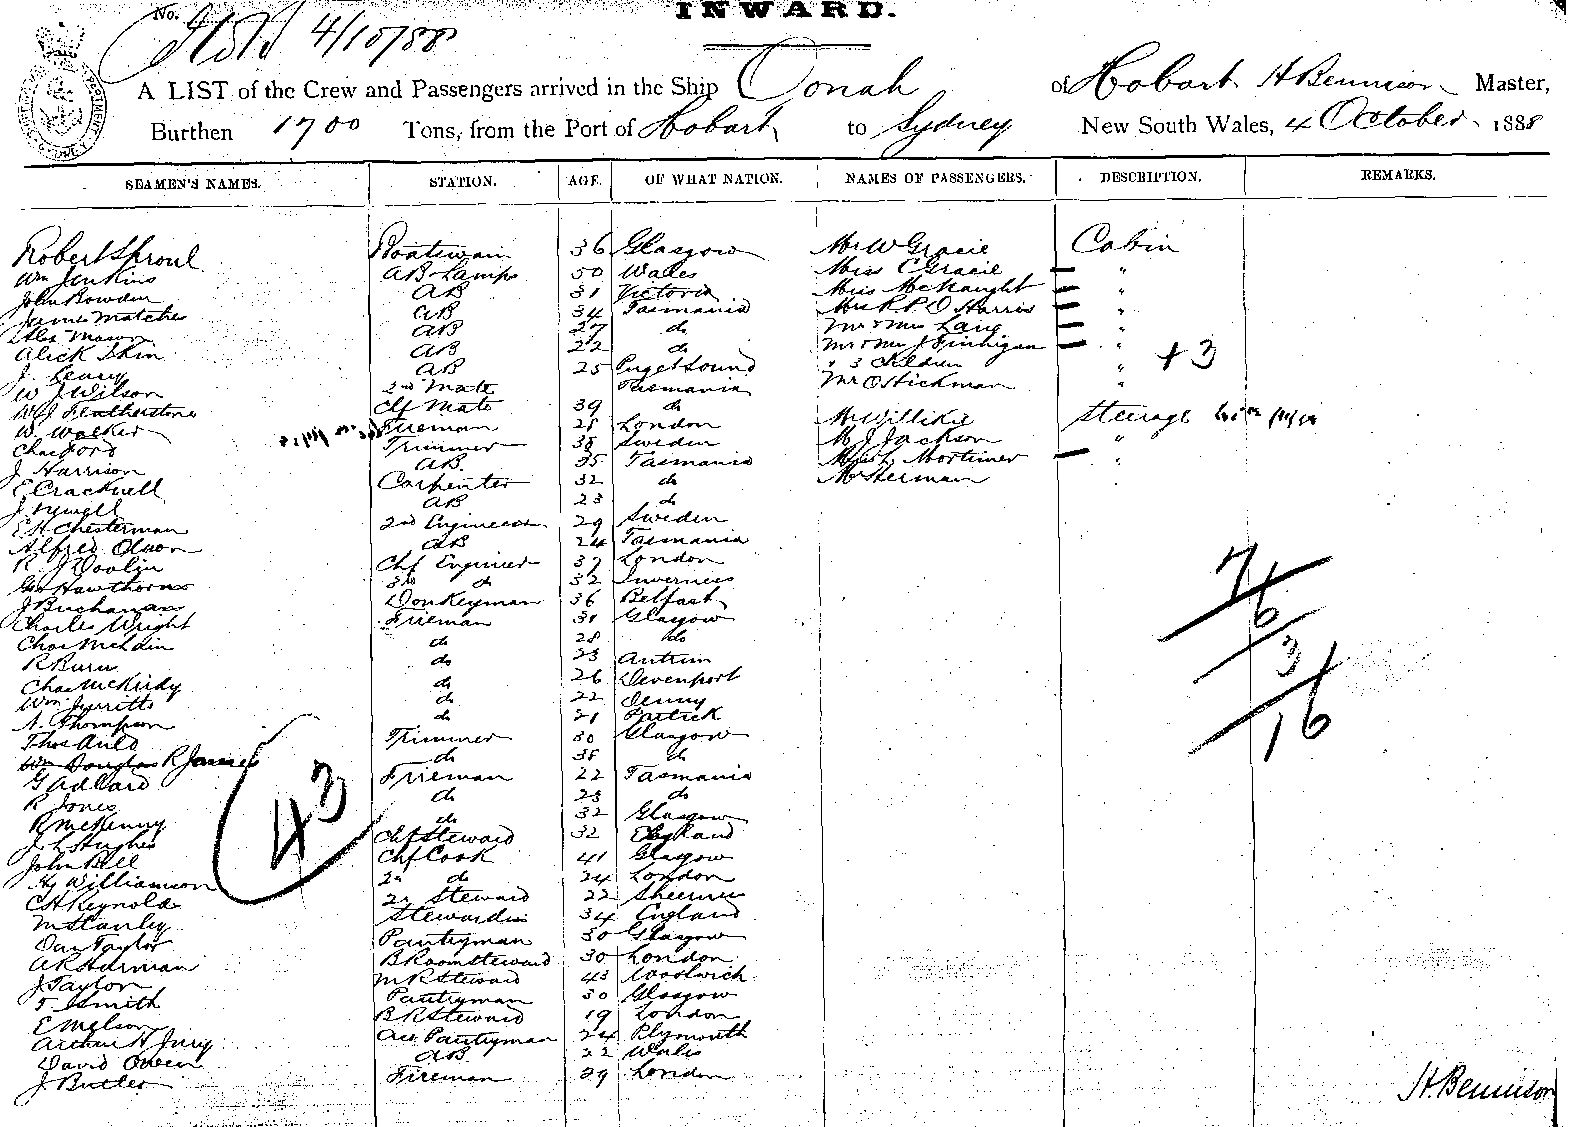 No.
INWARD.
4/10/88
A LIST of the Crew and Passengers arrived in the Ship Oonah of Hobart H Bennison Master,
Burthen 1700 Tons, from the Port of Hobart to Sydney New South Wales, 4 October 1888
SEAMEN'S NAMES. STATION. AGE. OF WHAT NATION. NAMES OF PASSENGERS. DESCRIPTION. REMARKS.
Robert Sproul Boatswain 36 Glasgow Mr W Gracie Cabin
Wm Jenkins AB & Lamps 50 Wales Miss C Gracie "
John Bowden AB 31 Victoria Miss McNaught "
James Matches AB 34 Tasmania Mrs R. P. O Harris "
Alex Mason AB 27 do Mr & Mrs Lang "
Alick Skin AB 22 do Mr & Mrs J Finnigan "
J. Leary AB 25 Puget Sound " 3 children " + 3
W J Wilson 2nd Mate Tasmania Mr O Hickman "
W J Featherstone Chf Mate 39 do
W. Walker Fireman 28 London Mr Willikie Steerage
Chas Ford Trimmer 38 Sweden Mr J Jackson "
J Harrison AB. 35 Tasmania Mortimer "
E Cracknell Carpenter 32 do Mr Herman
J Newell AB 23 do
E H Chesterman 2nd Engineer 29 Sweden
Alfred Olson AB 24 Tasmania
R J Woolin Chf Engineer 37 London
Geo Hawthorns 3rd do 32 Inverness
J Buchanan Donkeyman 36 Belfast
Charles Wright Fireman 31 Glasgow
Chas Mehdin do 28 do
R Burn do 23 Antrim
Chas McKirdy do 26 Devenport
Wm Jerritts do 22 Denny
A. Thompson do 21 Partick
Thos Auld Trimmer 30 Glasgow
Wm Douglas R James do 38 do
G Adlard Frieman 22 Tasmania
R Jones do 23 do
R McKenny do 32 Glasgow
J L Hughes Chf Steward 32 England
John Bell Chf Cook 41 Glasgow
Hy Williamson 2n do 24 London
C H Reynolds 2n Steward 22 Sheerness
M Stanley Stewardess 34 England
Dan Taylor Pantryman 30 Glasgow
A R Harman B Room steward 30 London
J Taylor M R Steward 43 Woolwich
T. Smith Pantryman 30 Glasgow
E Melson B R Steward 19 London
Archer H Jury Ass Pantryman 24 Plymouth
David Owen AB 22 Wales
J Butler Fireman 29 London
43
7
6
3
16
H. Bennison